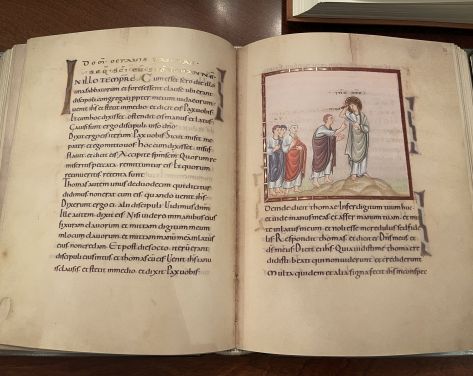 IN ILLO TEMPRE Cum esset sero die illo
una sabbatorum et fores essent clause ubi erant
discipuli congregati propter metum iudaeorum
uenit ihs et stetit in medio et dicit eis Pax uobis
Et cum hoc dixisset ostendit eis manus et latus
Gauisi sunt ergo discipuli uiso dno
Dixit ergo eis iterum Pax uobis Sicut misit me
pater et ego mitto uos Hoc cum dixisset insuf
flauit et dicit eis Accipite spm scm Quorum re
miseritis peccata remittuntur eis Et quorum
retinueritis retenta sunt
Thomas autem unus de duodecim qui dicitur
didimus non erat cum eis quando uenit ihs
Dixerunt ergo ei alii discipuli Uidimus dnm
Ille autem dixit eis Nisi uidero in manibus eius
figuram clauorum et mittam digitum meum in
locum clauorum et mittam manum meam in latus
eius non credam Et post dies octo iterum erant
discipuli eius intus et thomas cum eis Uenit ihs ianu
is clausis et stetit in medio et dixit Pax uobis
Deinde dicit thomae Infer digitum tuum huc
et uide manus meas et affer manum tuam et mit
te in latus meum et noli esse incredulus sed fide
lis Respondit thomas et dixit ei Dns meus et
ds meus Dicit ei ihs Quia uidisti me thoma cre
didisti beati qui non uiderunt et crediderunt
Multa quidem et alia signa fecit ihs in conspec